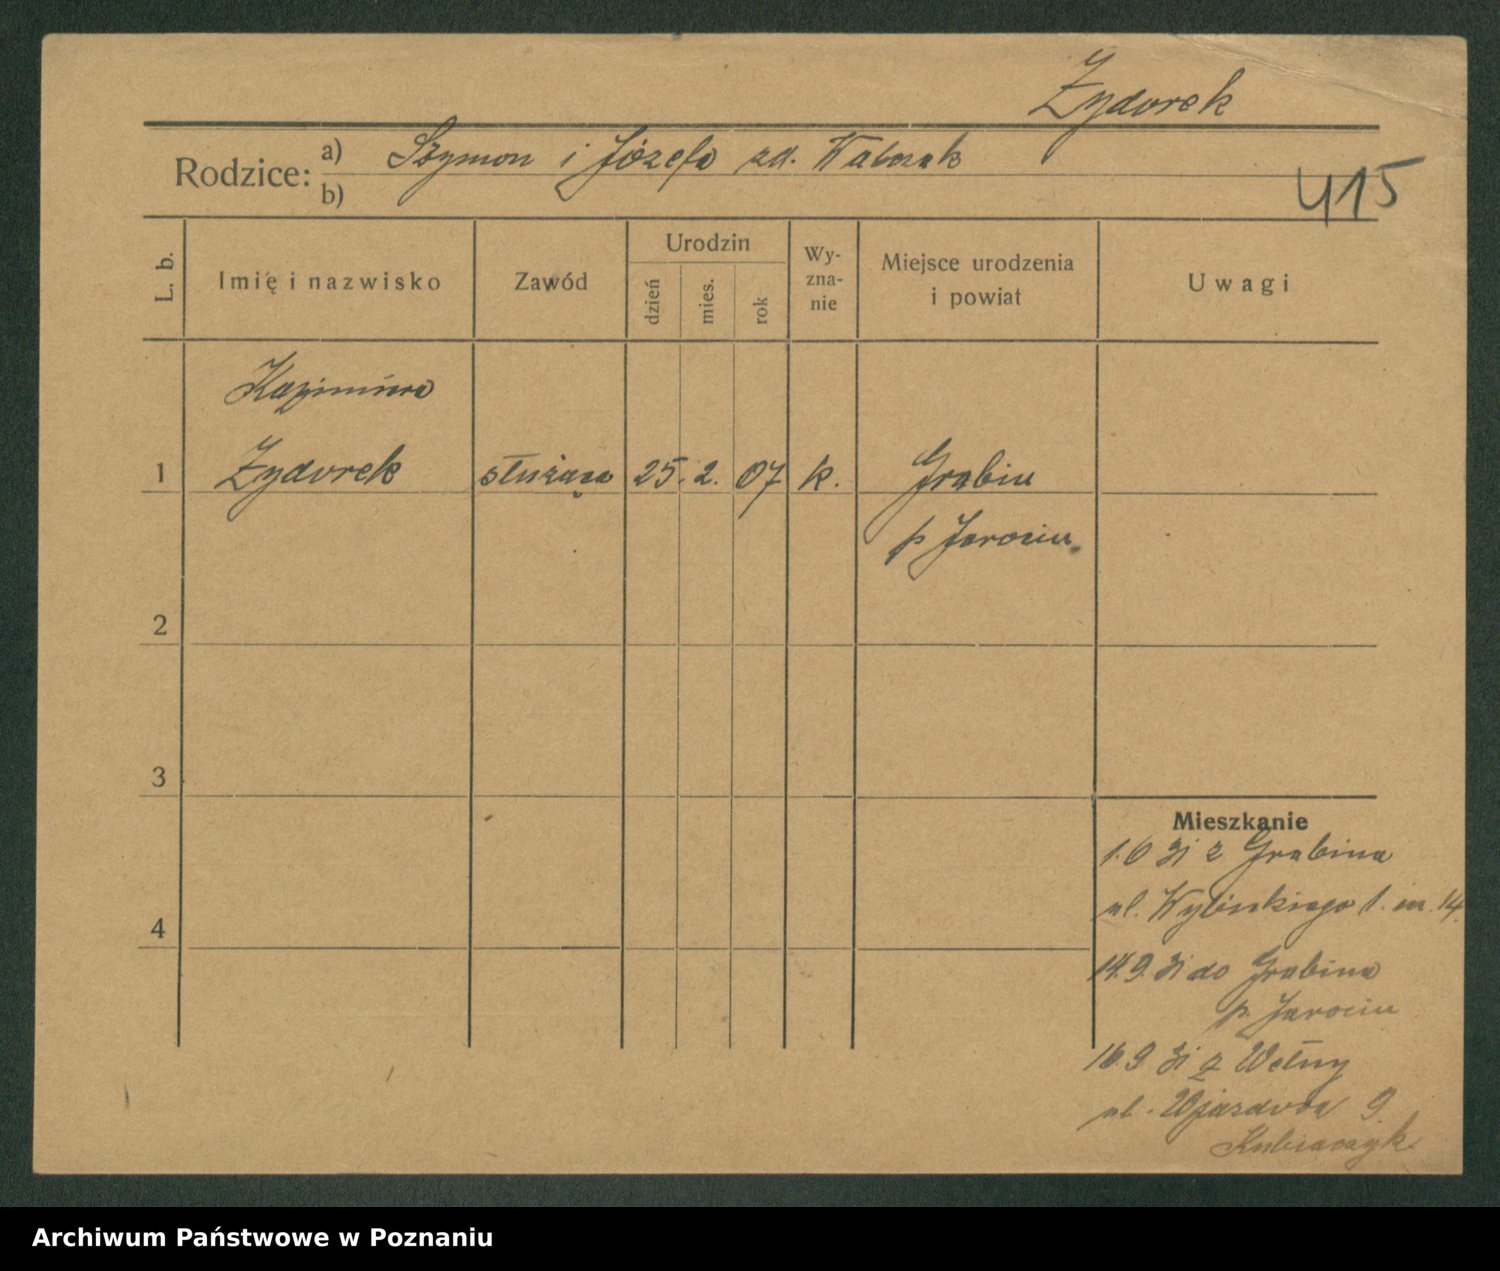 Zydorek
Rodzice: a) Szymon i Józefa zd. Walczak
b)
415
L. b.
Imię i nazwisko
Zawód
Urodzin
dzień
mies.
rok
Wy-
zna-
nie
Miejsce urodzenia
i powiat
Uwagi
Kazimiera
1 Zydorek służąca 25. 2. 07 k. Grabin
p Jarocin
2
3
4
Mieszkanie
1.6 31 z Grabina
ul. 1. m. 14.
14.9. 31 do Grabina
p. Jarocin
16.9 31 z Wełny
ul. Wjazdowa 9.
Kubiaczyk
Archiwum Państwowe w Poznaniu